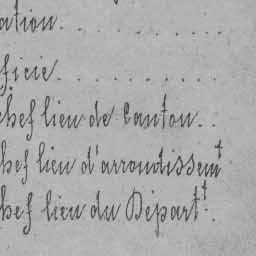 ation. . . . . . . . . .
ficie. . . . . . . . . .
chef lieu de Canton. .
chef lieu d'arrondissemt
chef lieu du Départt.